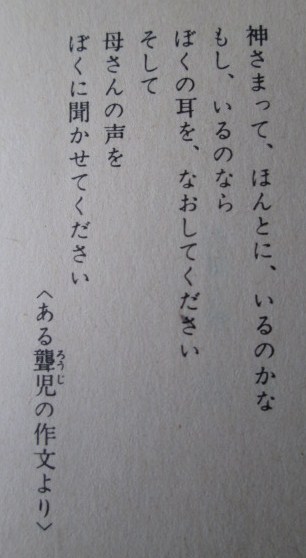 神さまって、ほんとに、いるのかな
もし、いるのなら
ぼくの耳を、なおしてください
そして
母さんの声を
ぼくに聞かせてください
〈ある聾児の作文より〉
ろうじ